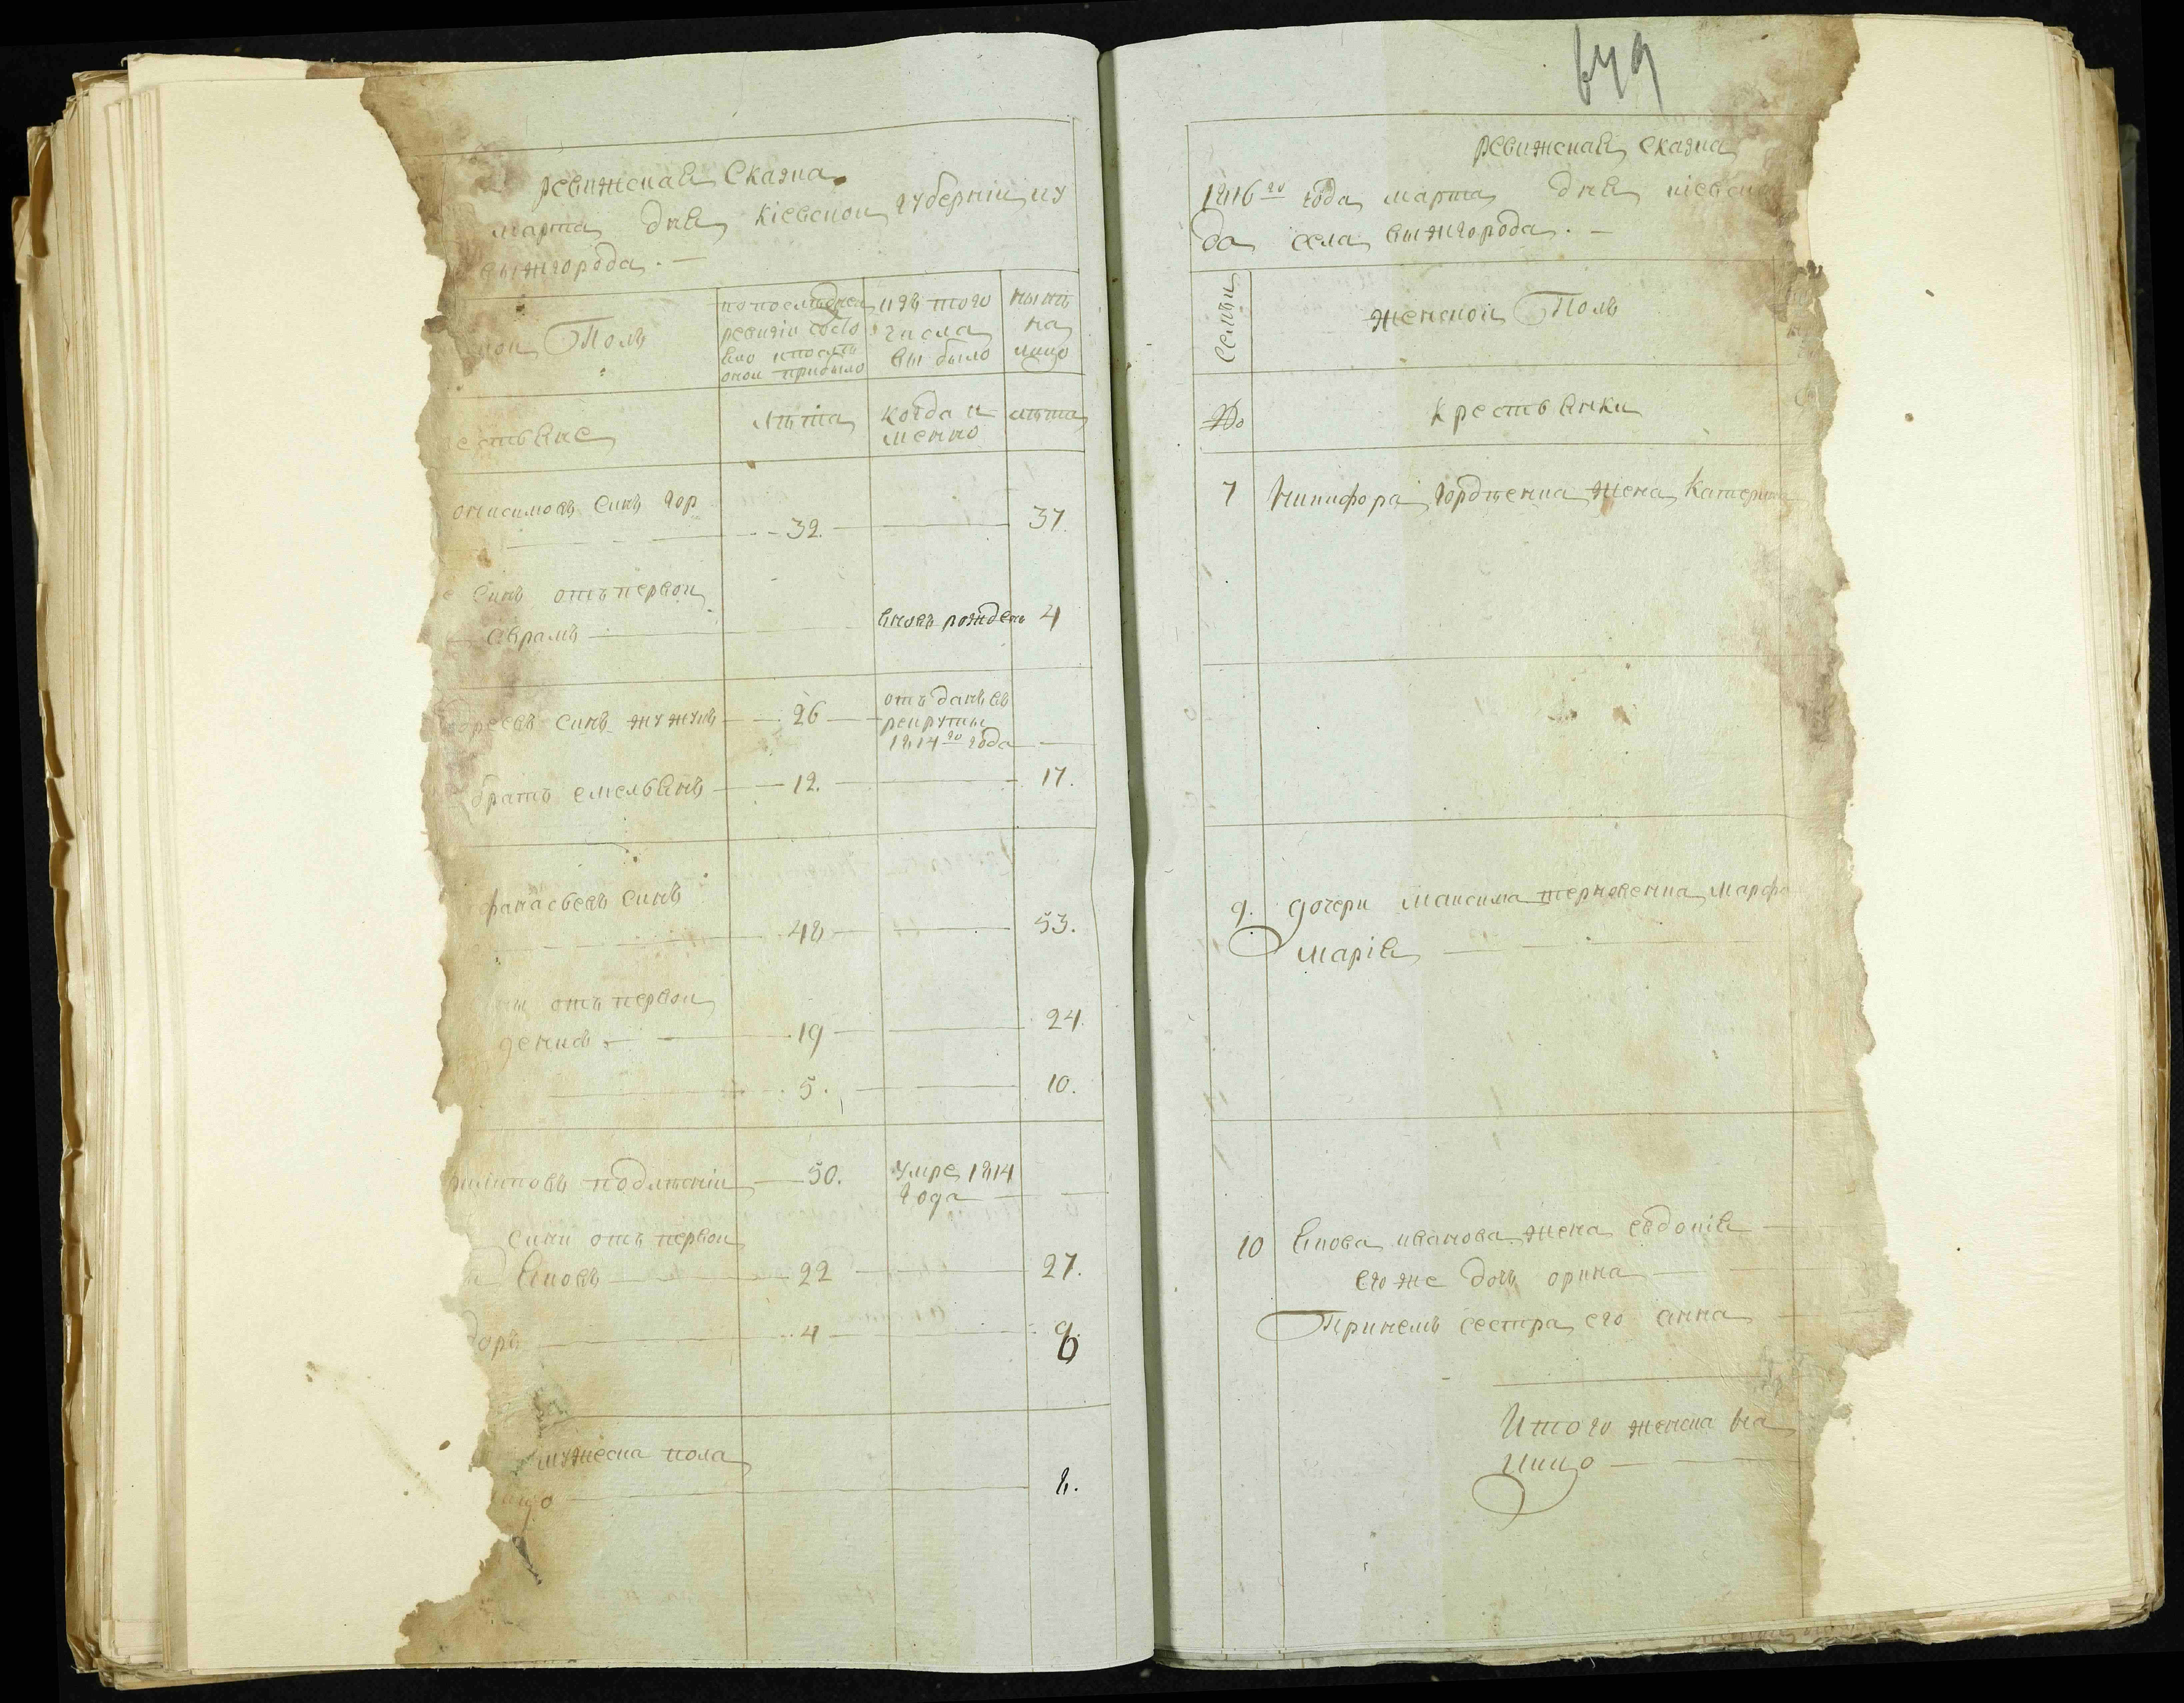 ревижская сказка
марта дня кіевской губерніи и у
вышгорода. —
ской Полъ
по последней ревизіи состояло и после оной прибыло
изъ того числа выбыло
ныне на лицо
естьяне
лета
когда именно
лета
онисимовъ синъ гор
32. 37.
синъ отъ первой
аврамъ вновь рожденъ 4
дреевъ синъ жужукъ 26 отъданъ въ рекруты 1814го года
братъ емельянъ 12. 17.
фанасьевъ синъ
48 53.
ны отъ первой
денисъ 19 24.
5. 10.
филиповъ 50. умре 1814 года
сини отъ первой
яковъ 22 27.
доръ 4 9.
мужеска пола
лицо 8.
649
ревижская сказка
1816го года марта дня кіевск
да села вышгорода. —
семьи
женской Полъ
№
крестьянки
7 Никифора гордеенка жена катерина
9. дочери максима терновенка марфа
марія
10 якова иванова жена евдокія
его же дочь орина
сестра его анна
Итого женска на
лицо